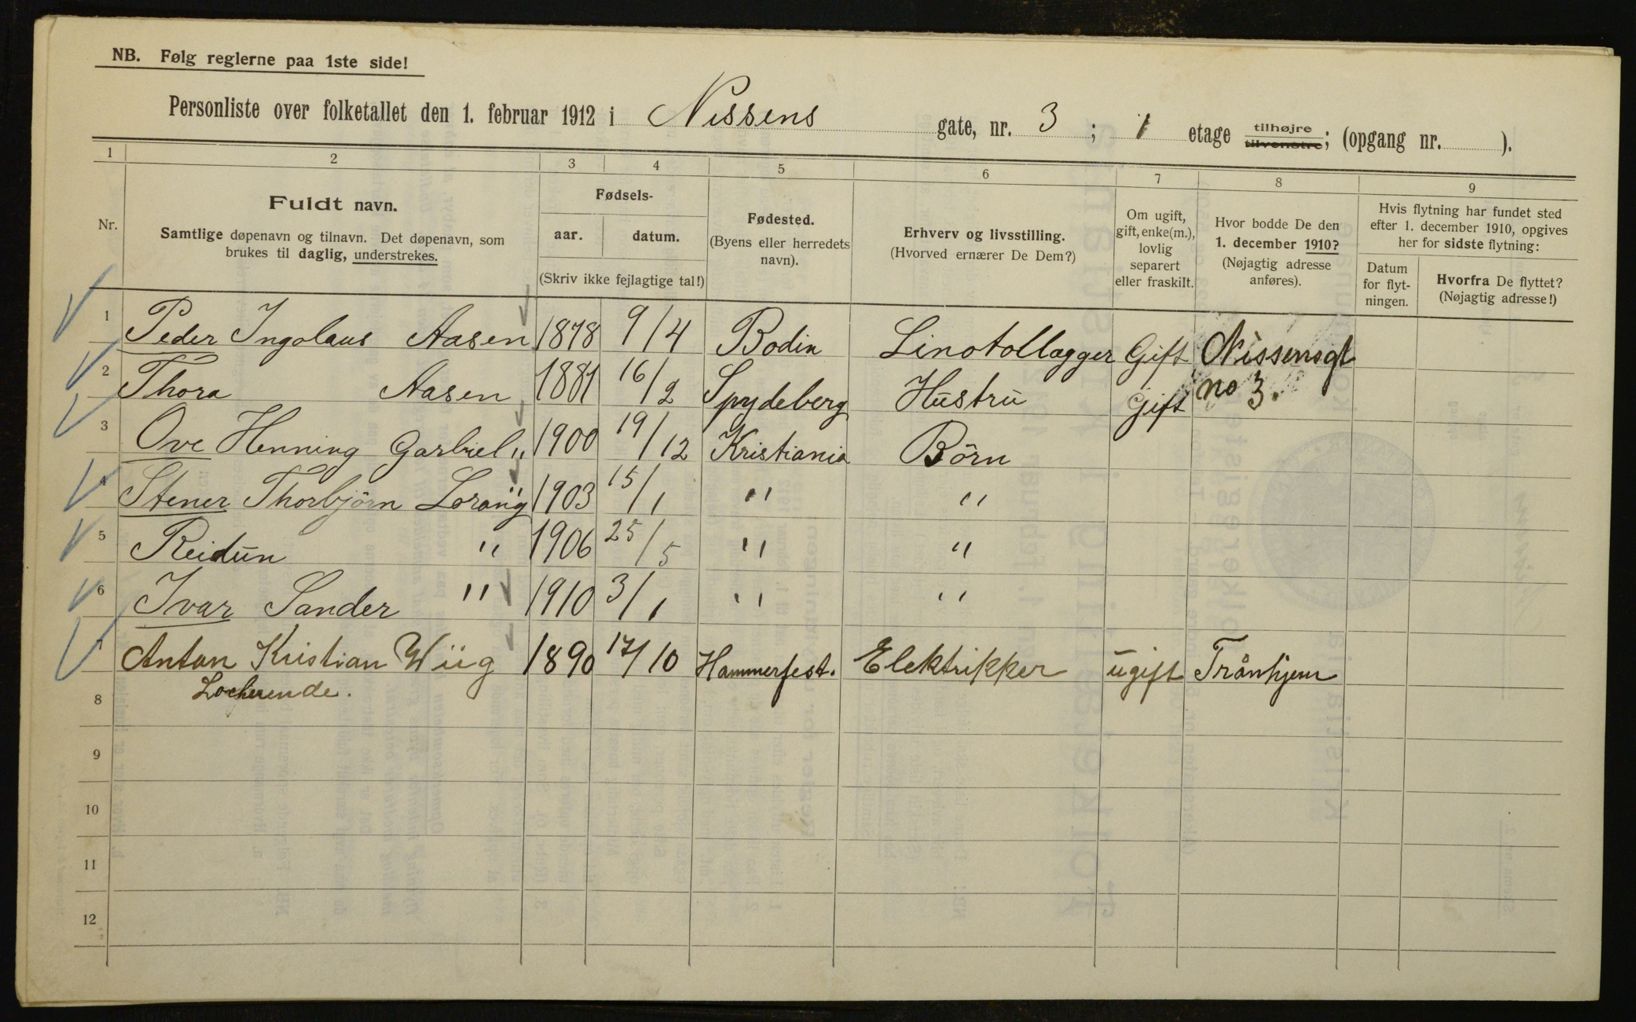 NB. Følg reglerne paa 1ste side!
Personliste over folketallet den 1. februar 1912 i Nissens gate, nr. 3 ; 1 etage tilhøjre tilvenstre; (opgang nr. ).
1 2 3 4 5 6 7 8 9
Nr.
Fuldt navn.
Samtlige døpenavn og tilnavn. Det døpenavn, som
brukes til daglig, understrekes.
Fødsels-
aar. datum.
(Skriv ikke fejlagtige tal!)
Fødested.
(Byens eller herredets
navn).
Erhverv og livsstilling.
(Hvorved ernærer De Dem?)
Om ugift,
gift, enke(m.),
lovlig
separert
eller fraskilt.
Hvor bodde De den
1. december 1910?
(Nøjagtig adresse
anføres).
Hvis flytning har fundet sted
efter 1. december 1910, opgives
her for sidste flytning:
Datum
for flyt-
ningen.
Hvorfra De flyttet?
(Nøjagtig adresse!)
1 Peder Ingolaus Aasen 1878 9/4 Bodin Linotollægger Gift Nissensgt
2 Thora Aasen 1881 16/2 Spydeberg Hustru Gift no 3.
3 Ove Henning Garbiel " 1900 19/12 Kristiania Börn
4 Stener Thorbjörn Lorang " 1903 15/1 " "
5 Reidun " 1906 25/5 " "
6 Ivar Sander " 1910 3/1 " "
7 Anton Kristian Wiig 1890 17/10 Hammerfest. Elektrikker ugift Trånhjem
8 Locherende.
9
10
11
12